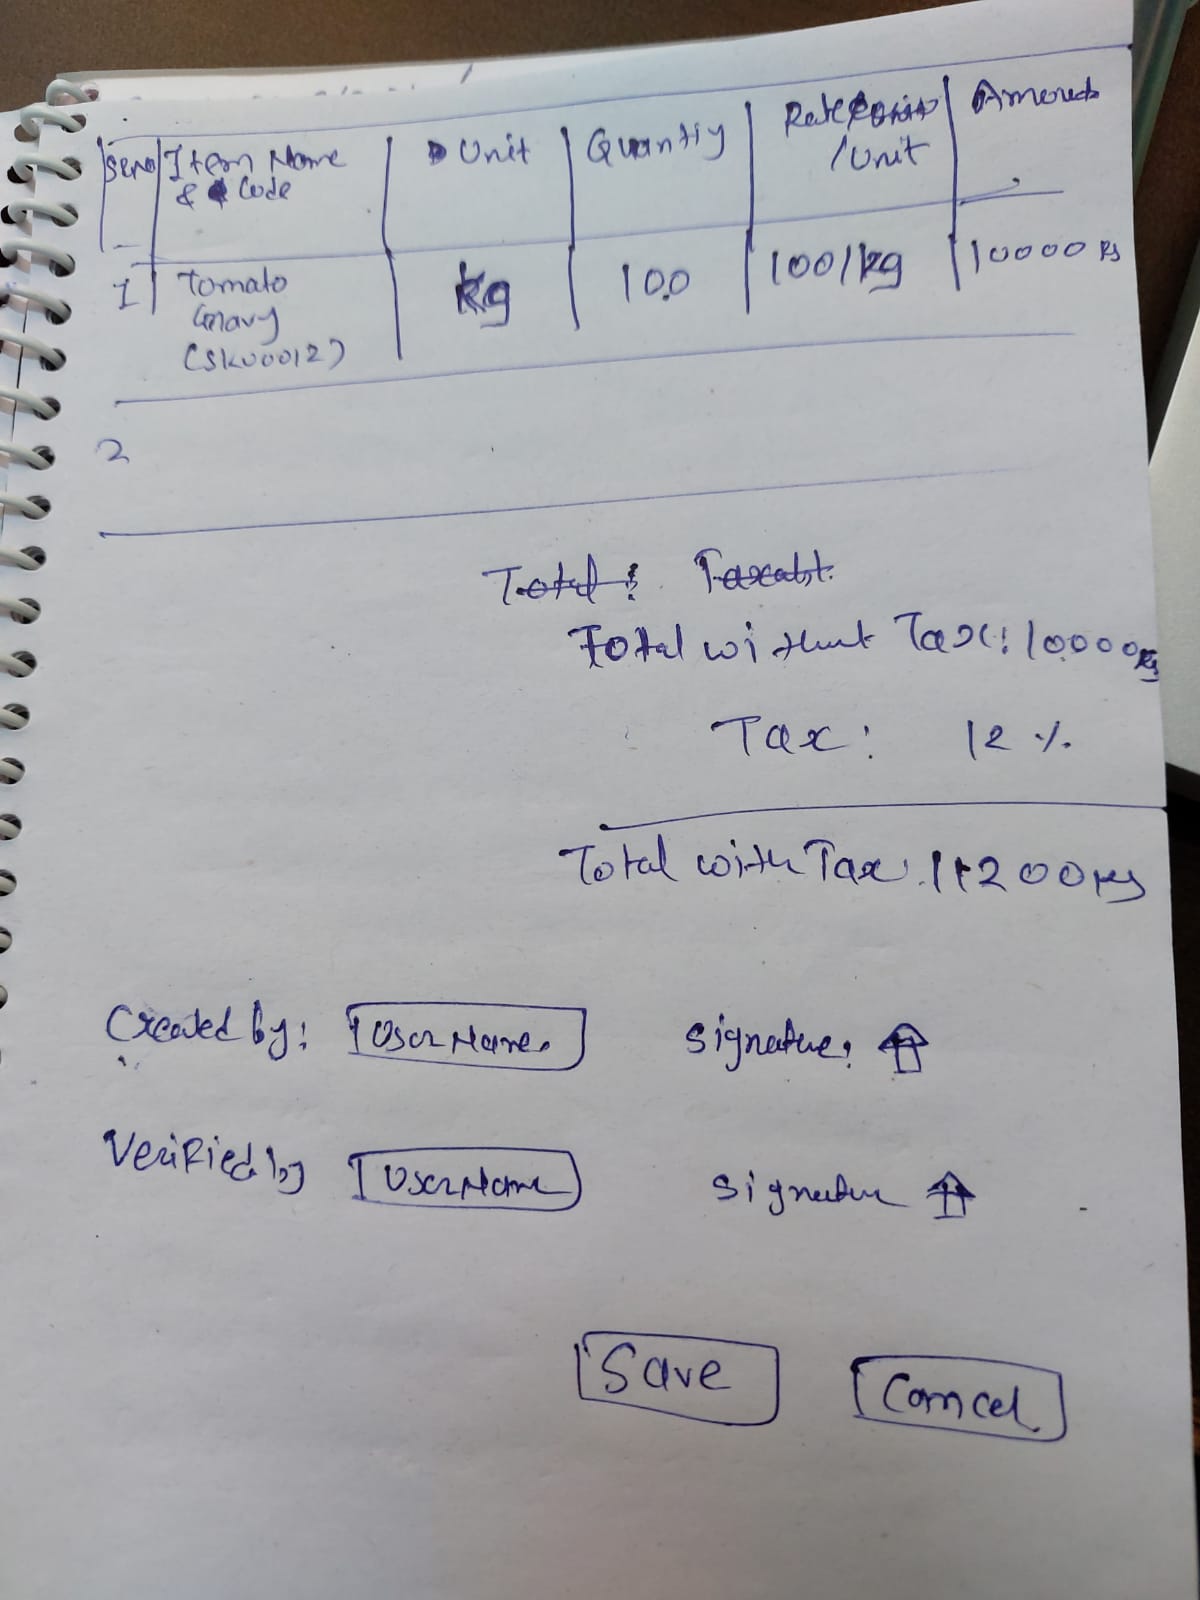 Sr no | Item Name & Code | Unit | Quantiy | Rate /Unit | Amount
1 | Tomato Gravy (SKU0012) | kg | 100 | 100/kg | 10000 Rs
2
Total: Taxabl.
Total without Tax: 10000 Rs
Tax: 12 %
Total with Tax 11200 Rs
Created by: User Name. Signature:
Verified by User Name Signature
Save Cancel